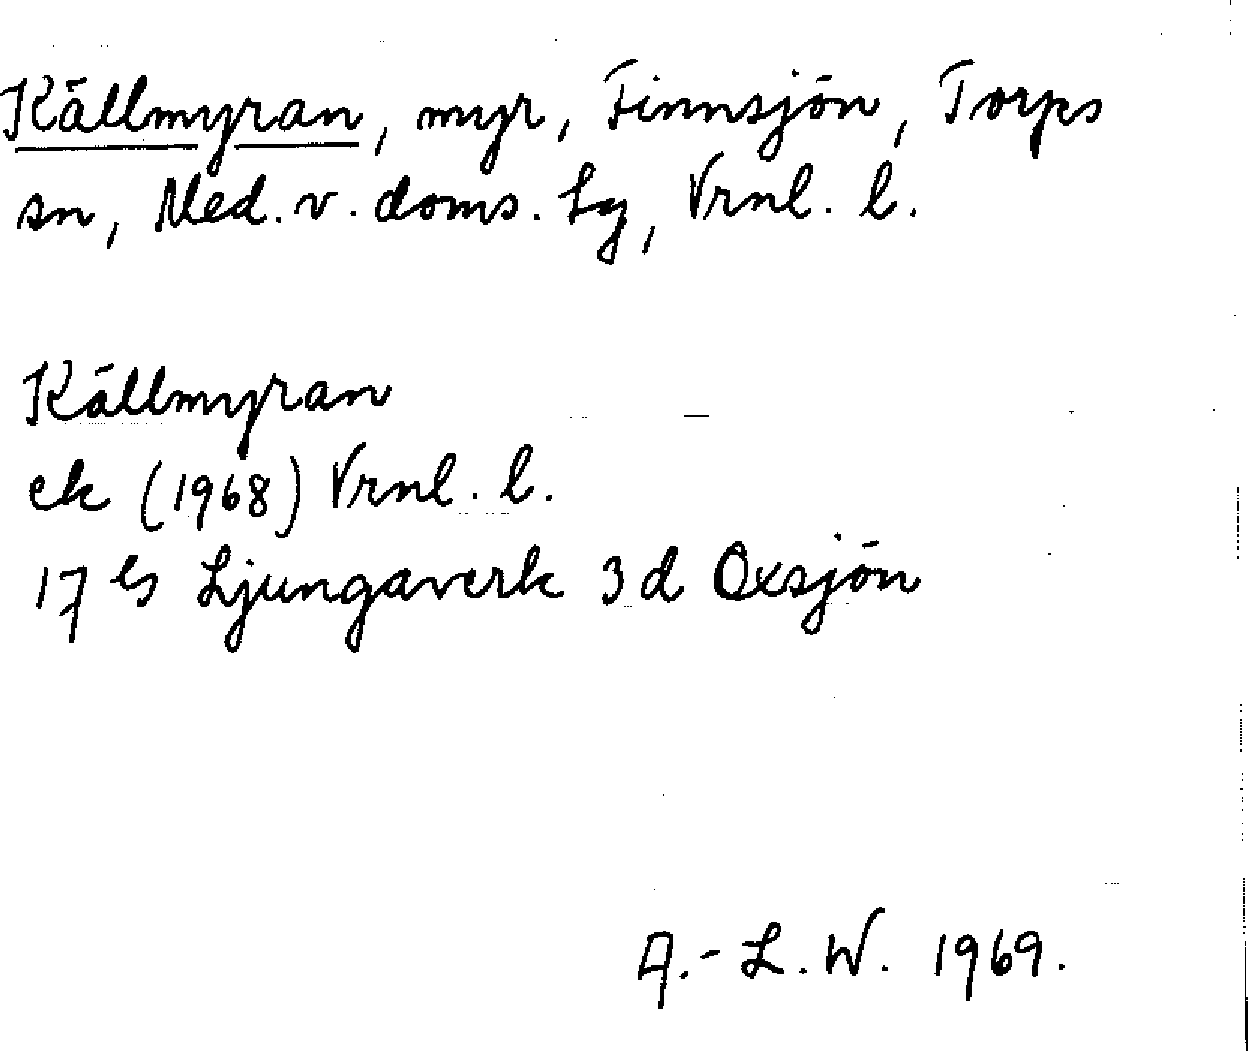 Källmyran, myr, Finnsjön, Torps
sn, Med. v. doms. Lg, Vrnl. l.
Källmyran
ek (1968) Vrnl. l.
17 Ljungaverk 3d Oxsjön
A.-L. W. 1969.